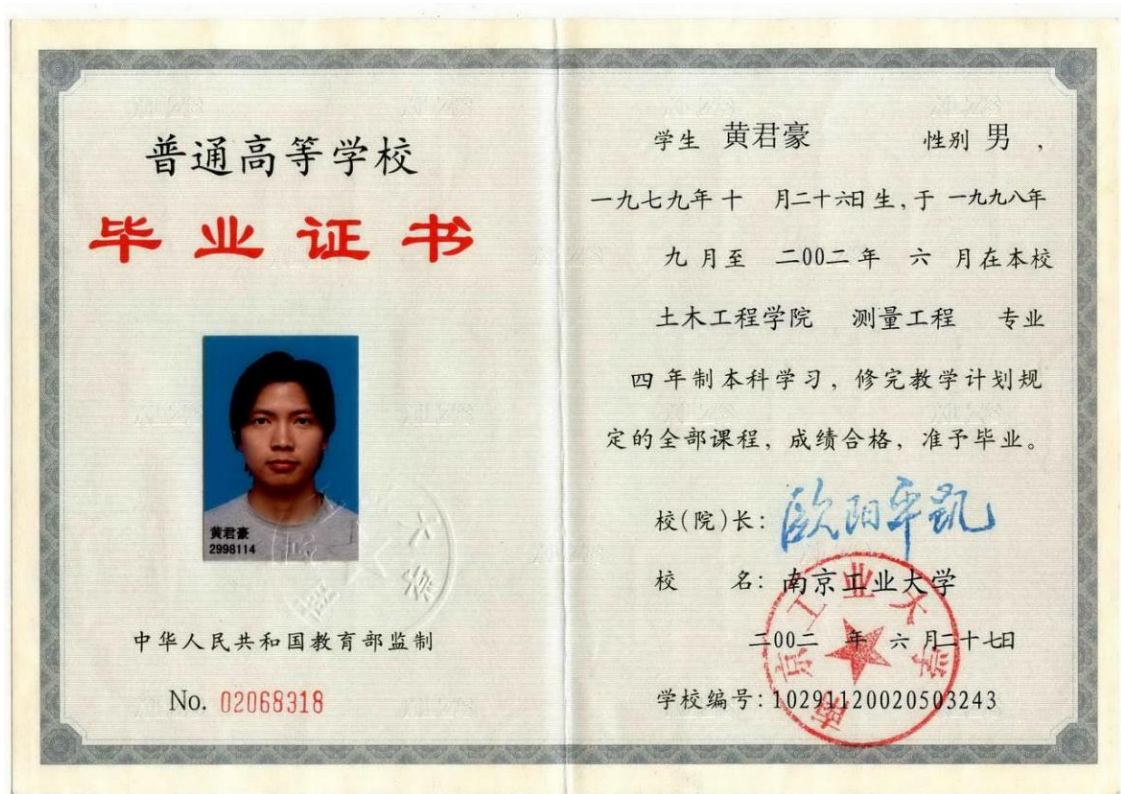 普通高等学校
毕业证书
黄君豪
2998114
中华人民共和国教育部监制
No. 02068318
学生 黄君豪 性别 男 ,
一九七九年 十 月二十六日 生, 于 一九九八年
九 月至 二00二 年 六 月在本校
土木工程学院 测量工程 专业
四 年制本科学习, 修完教学计划规
定的全部课程, 成绩合格, 准予毕业。
校(院)长: 欧阳平凯
校 名: 南京工业大学
二00二 年 六 月二十七日
学校编号: 10291120020503243
南京工业大学